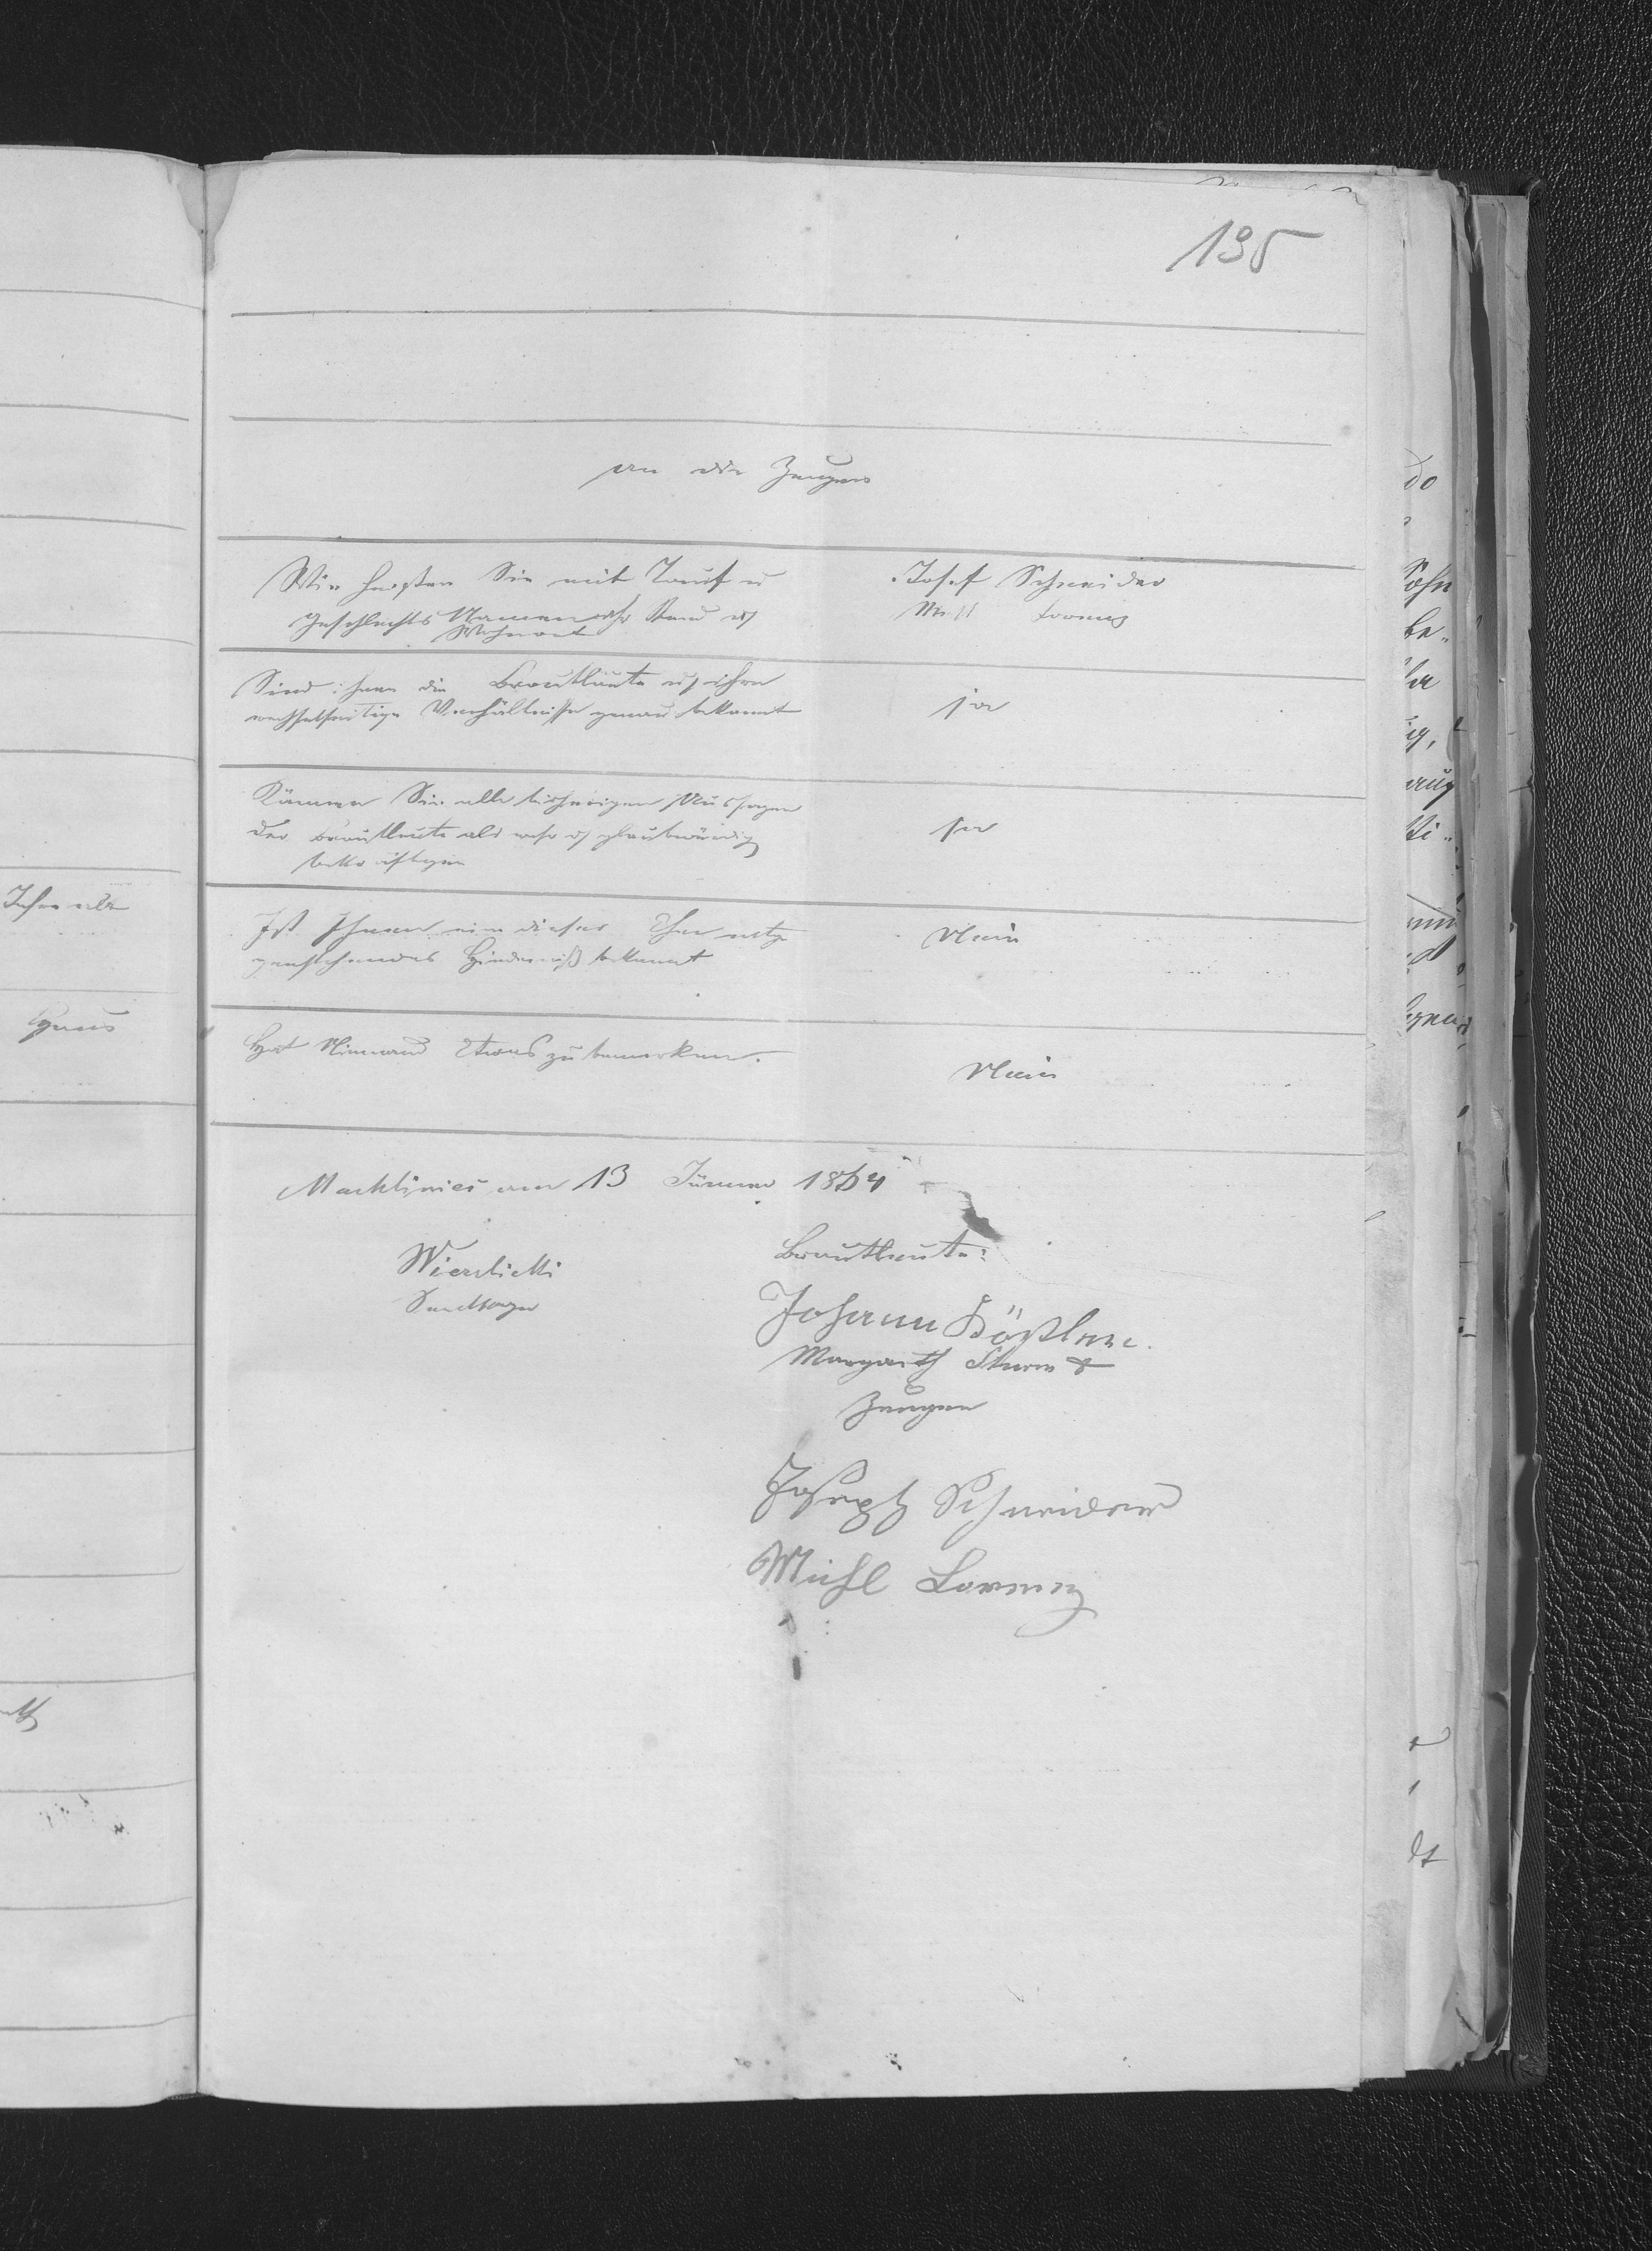 195
an die Zeugen
Wie heißen Sie mit Tauf u
Geschlechts Namen ihr Stand u
Wohnort
Josef Schneider
Lorenz
Sind ihnen die Brautleute u ihre
wechselseitige Verhältnisse genau bekannt
ja
Können Sie alle bisherigen Aussagen
der Brautleute als wahr u glaubwürdig
bekräftigen
ja
Ist Ihnen ein dieser Ehe entge
genstehendes Hinderniß bekannt
Nein
Hat Niemand Etwas zu bemerken.
Nein
am 13 Jänner 1864
Brautleute:
Johann
Margareth Sturm +
Zeugen
Joseph Schneider
Michl Lorenz